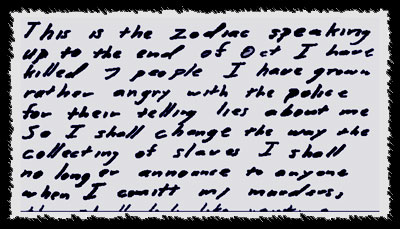 This is the zodiac speaking
up to the end of Oct I have
killed 7 people I have grown
rather angry with the police
for their telling lies about me
So I shall change the way the
collecting of slaves I shall
no longer announce to anyone
when I comitt my murders,